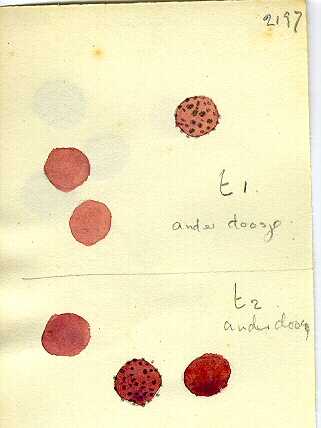 2197
t1.
ander doosje
t2
ander doosje